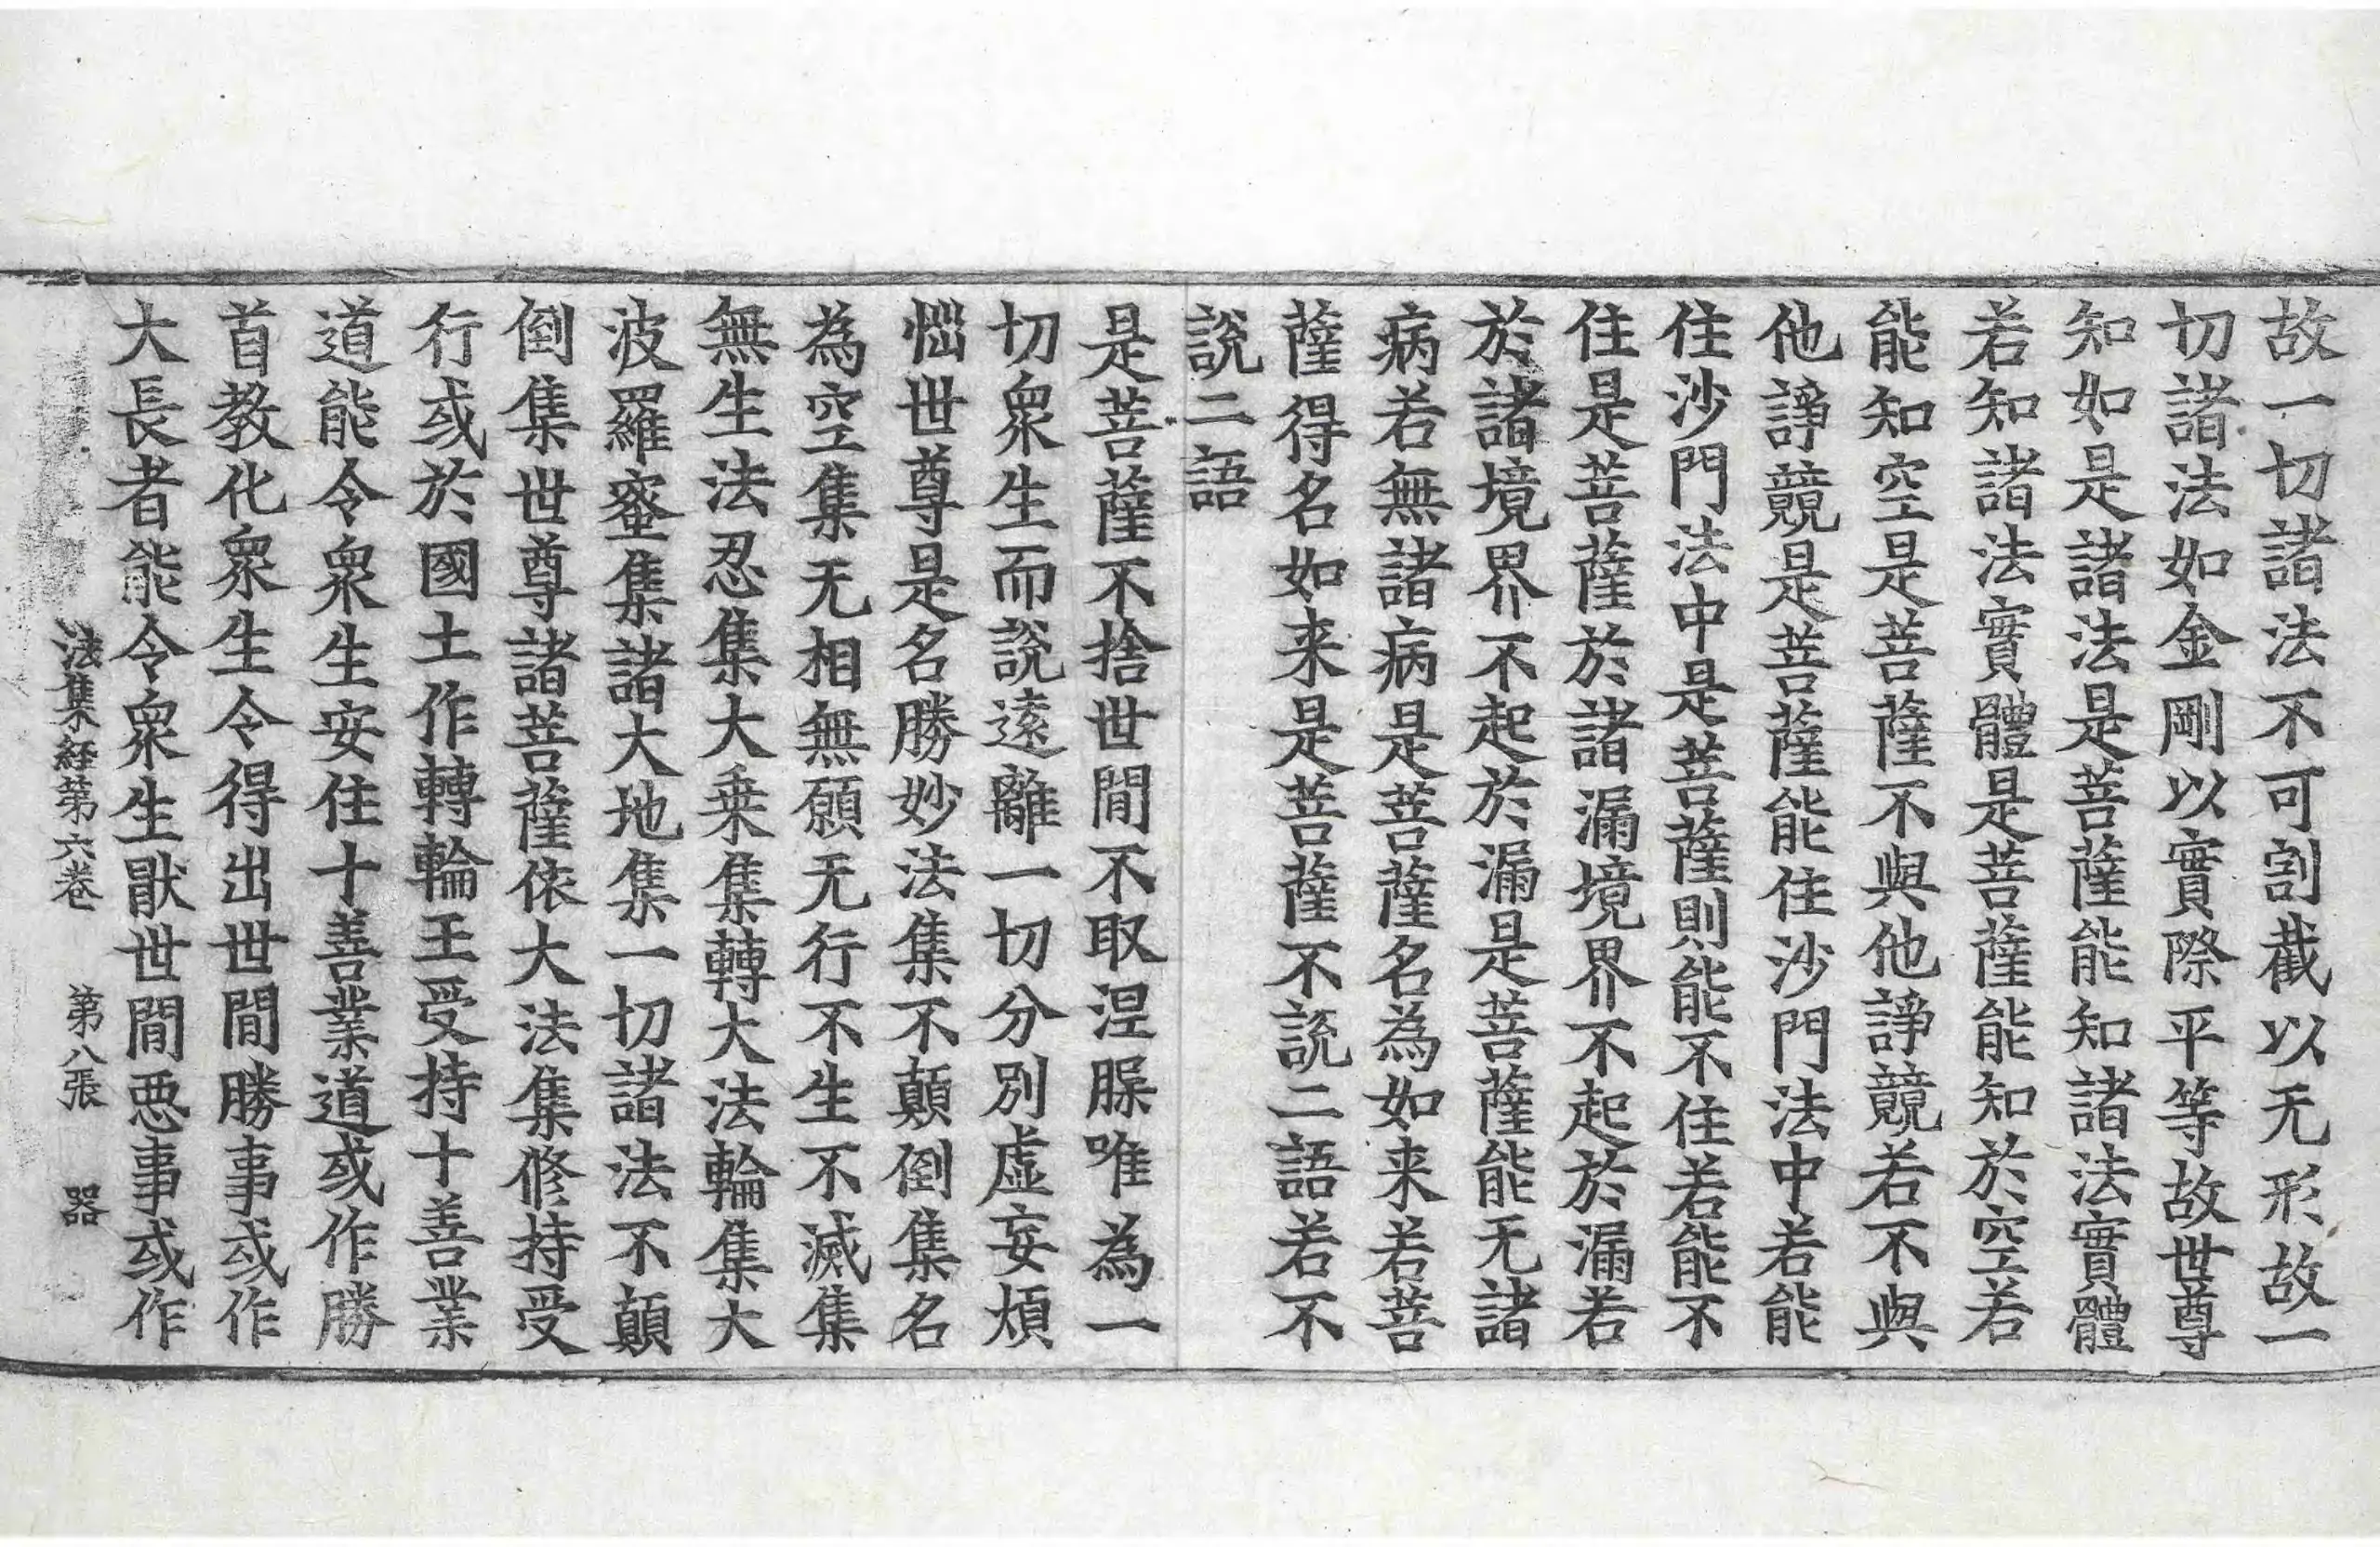 故一切諸法不可割截以无形故一
切諸法如金剛以實際平等故世尊
知如是諸法是菩薩能知諸法實體
若知諸法實體是菩薩能知於空若
能知空是菩薩不與他諍競若不與
他諍競是菩薩能住沙門法中若能
住沙門法中是菩薩則能不住若能不
住是菩薩於諸漏境界不起於漏若
於諸境界不起於漏是菩薩能无諸
病若無諸病是菩薩名為如来若菩
薩得名如来是菩薩不說二語若不
說二語
是菩薩不捨世間不取涅槃唯為一
切衆生而說遠離一切分別虛妄煩
惱世尊是名勝妙法集不顛倒集名
為空集无相無願无行不生不滅集
無生法忍集大乗集轉大法輪集大
波羅蜜集諸大地集一切諸法不顛
倒集世尊諸菩薩依大法集修持受
行或於國土作轉輪王受持十善業
道能令衆生安住十善業道或作勝
首教化衆生令得出世間勝事或作
大長者能令衆生猒世間惡事或作
法集経第六卷 第八張 器